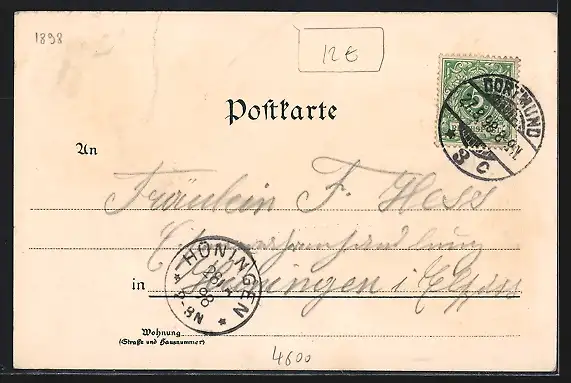 1898
12 €
Postkarte
DORTMUND
3 c
An
Fräulein F. Hess
HÖNINGEN
in Hüningen i Elsass
Wohnung
(Straße und Hausnummer)
4600